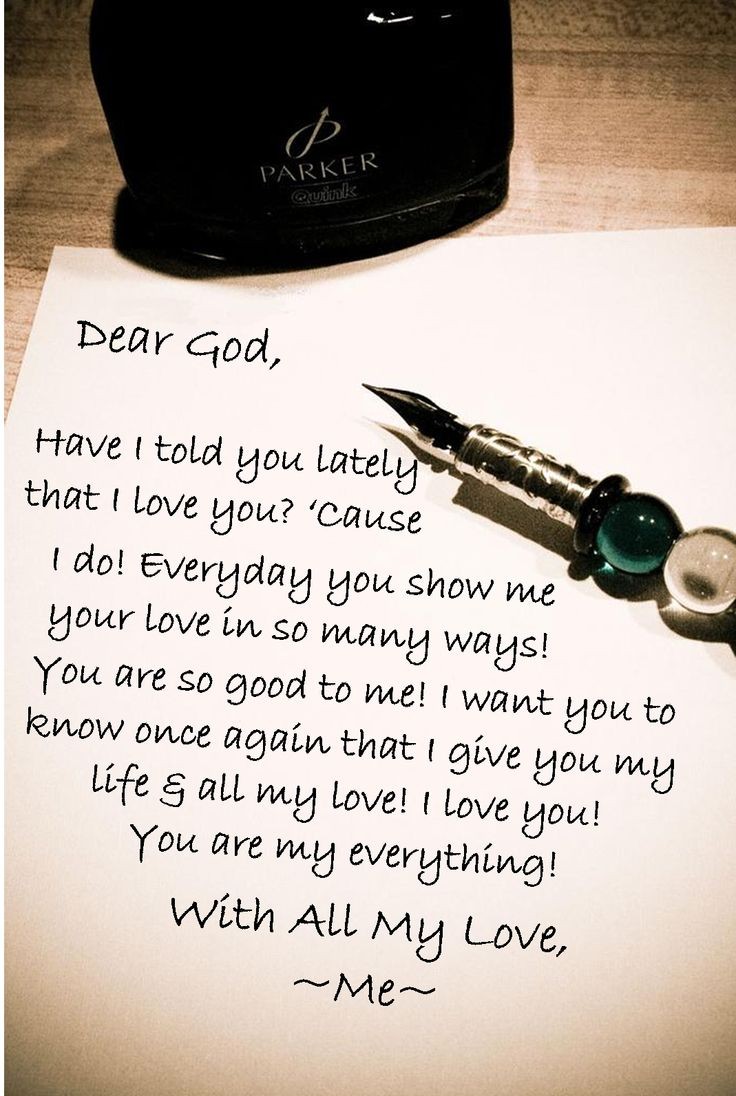 PARKER
Quink
Dear God,
Have I told you lately
that I love you? ‘Cause
I do! Everyday you show me
your love in so many ways!
You are so good to me! I want you to
know once again that I give you my
life & all my love! I love you!
You are my everything!
With All My Love,
~Me~